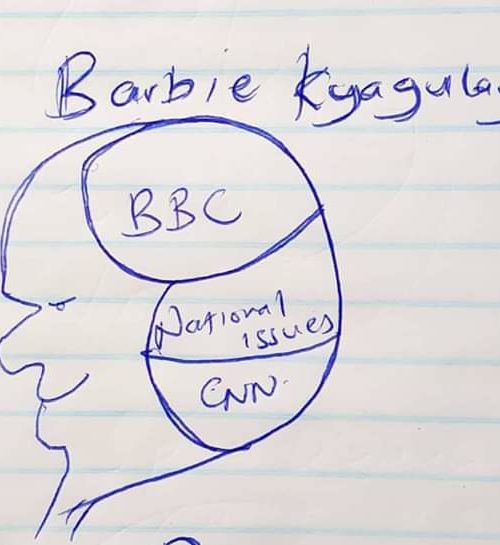 Barbie Kyagula
BBC
National
issues
CNN.